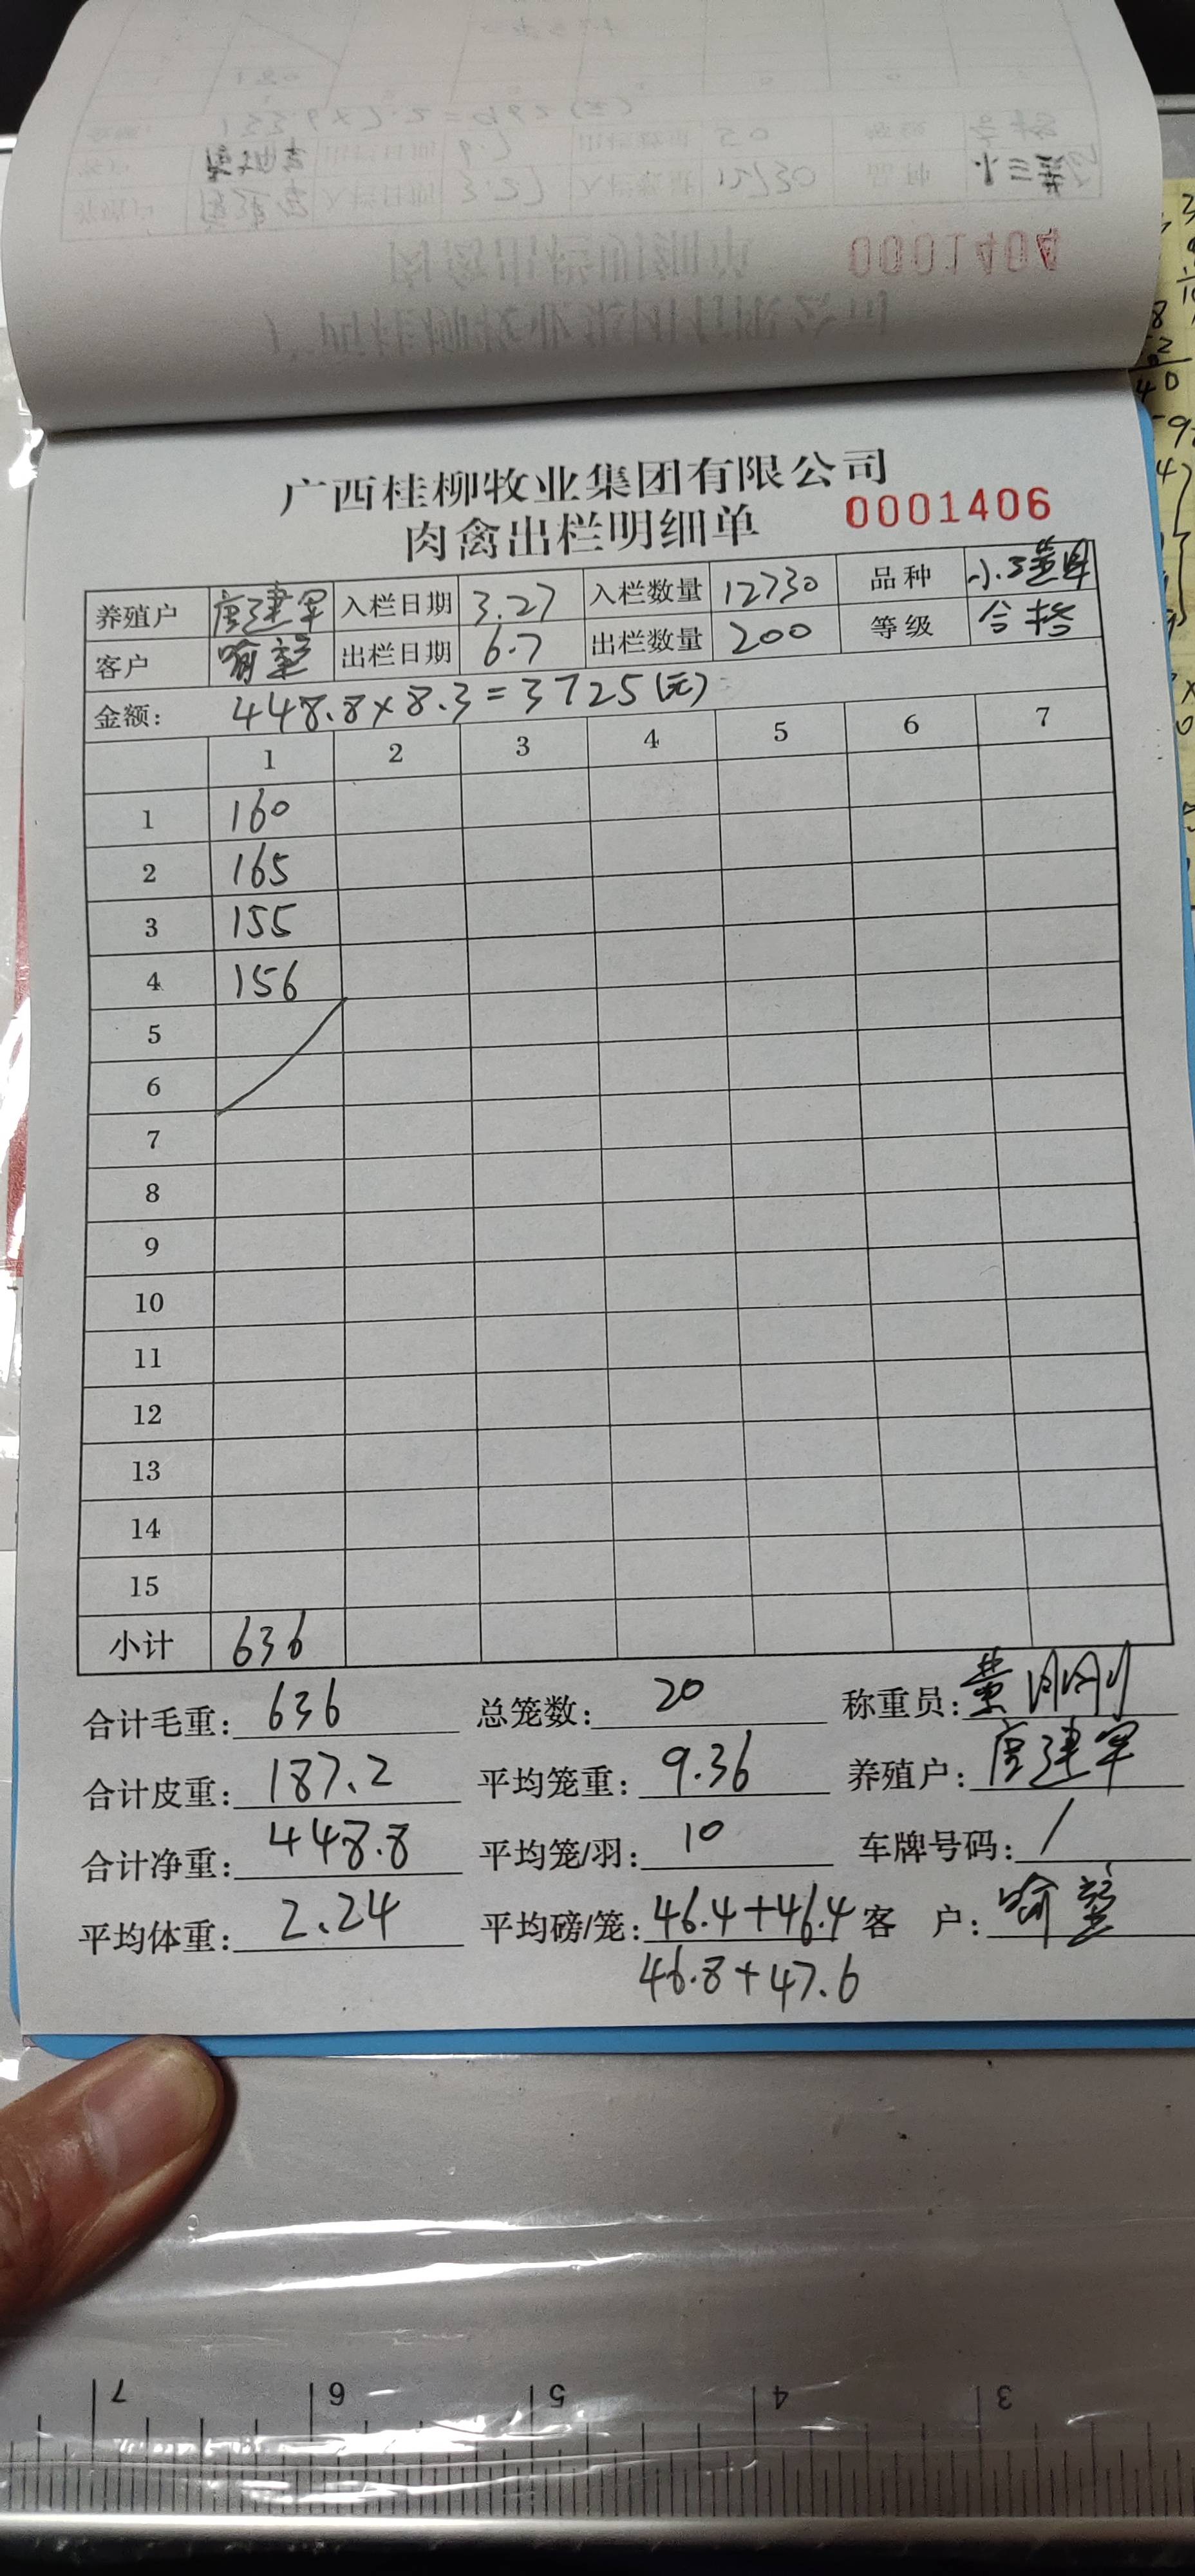 广西桂柳牧业集团有限公司
肉禽出栏明细单 0001406
养殖户 唐建军 入栏日期 3.27 入栏数量 12730 品种 小三黄
客户 喻 出栏日期 6.7 出栏数量 200 等级 合格
金额: 448.8×8.3=3725(元)
1 2 3 4 5 6 7
1 160
2 165
3 155
4 156
5
6
7
8
9
10
11
12
13
14
15
小计 636
合计毛重: 636 总笼数: 20 称重员: 黄刚
合计皮重: 187.2 平均笼重: 9.36 养殖户: 唐建军
合计净重: 448.8 平均笼/羽: 10 车牌号码: /
平均体重: 2.24 平均磅/笼: 46.4+46.4 客 户: 喻
46.8+47.6
0001404
7 6 5 4 3